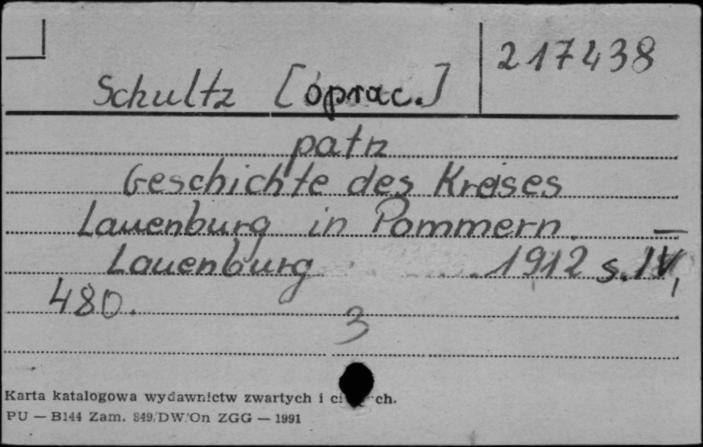 217438
Schultz [oprac.]
patrz
Geschichte des Kreises
Lauenburg in Pommern. —
Lauenburg 1912 s. IV,
480.
3
Karta katalogowa wydawnictw zwartych i ch.
PU — B144 Zam. 849/DW/On ZGG — 1991